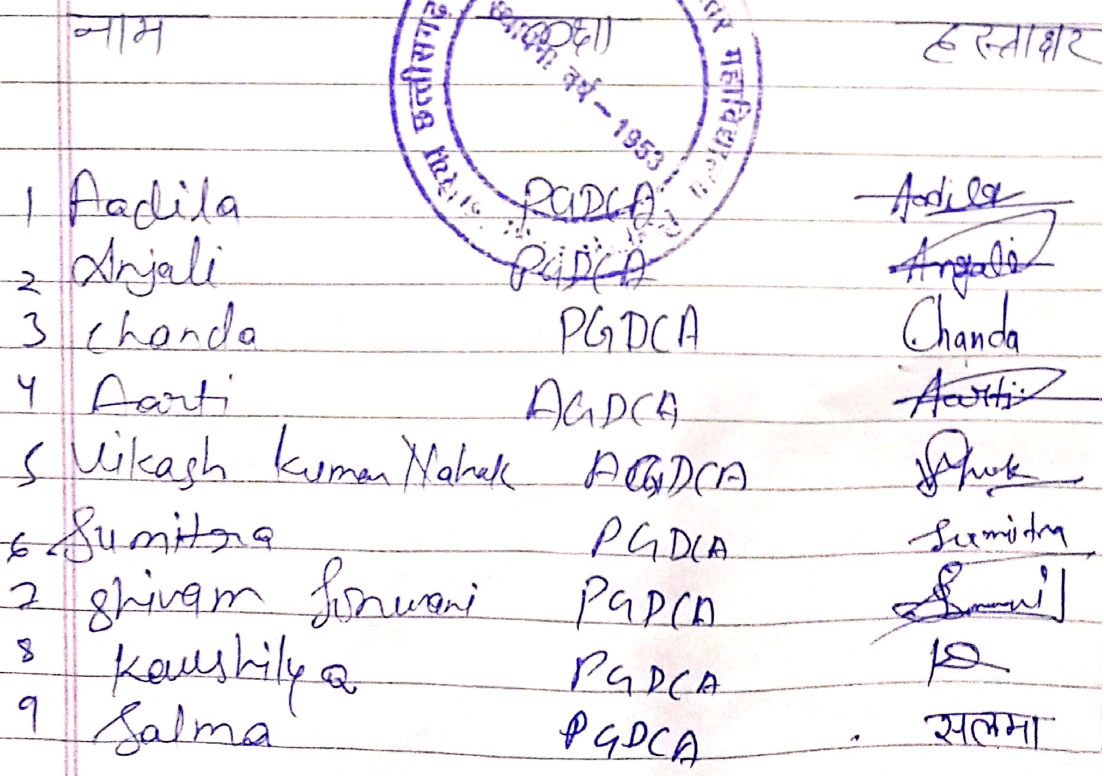 नाम कक्षा हस्ताक्षर
छत्तीसगढ़
स्थापना वर्ष - 1953
1 Aadila PGDCA Aadila
2 Anjali PGDCA Anjali
3 Chanda PGDCA Chanda
4 Aarti AGDCA Aarti
5 Vikash Kumar Nahak AGDCA
6 Sumitra PGDCA Sumitra
7 Shivam Sonwani PGDCA
8 Kaushilya PGDCA
9 Salma PGDCA सलमा